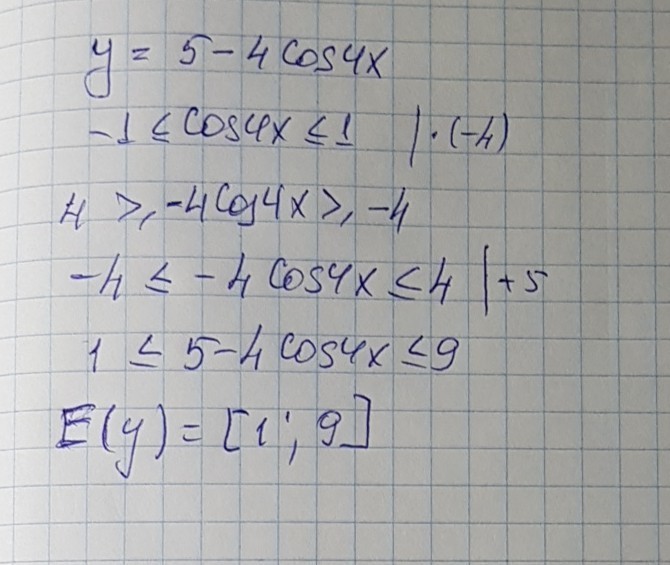 y = 5 - 4 cos4x
-1 ≤ cos4x ≤ 1 | · (-4)
4 ≥ -4cos4x ≥ -4
-4 ≤ -4 cos4x ≤ 4 | +5
1 ≤ 5-4 cos4x ≤ 9
E(y) = [1; 9]